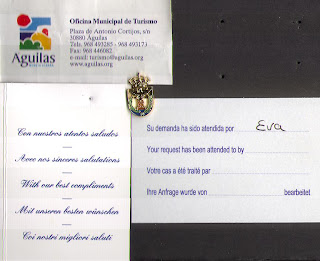 Oficina Municipal de Turismo
Plaza de Antonio Cortijos, s/n
30880 Aguilas
Tels. 968 493285 - 968 493173
Fax: 968 446082
e-mail: turismo@aguilas.org
www.aguilas.org
Aguilas
Con nuestros atentos saludos
Avec nos sincères salutations
With our best compliments
Mit unseren besten wünschen
Coi nostri migliori saluti
Su demanda ha sido atendida por Eva
Your request has been attended to by
Votre cas a été traité par
Ihre Anfrage wurde von bearbeitet